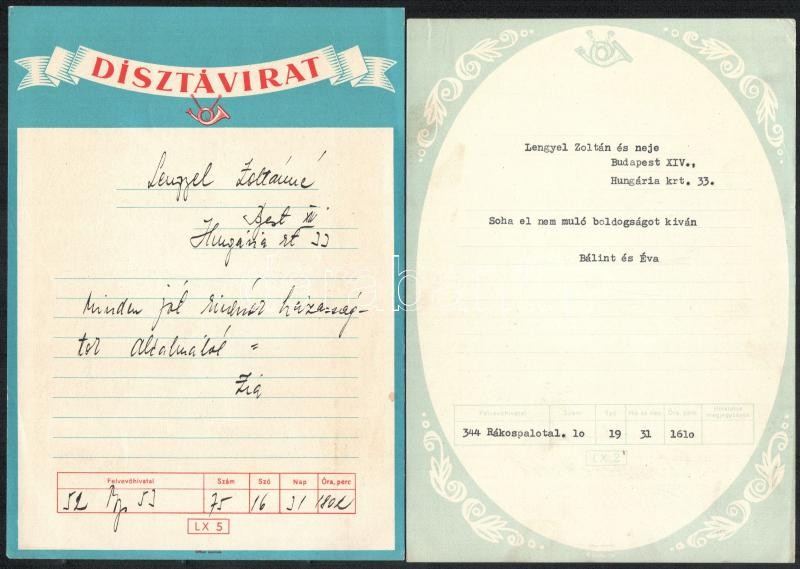 DÍSZTÁVIRAT
Lengyel Zoltánné
Bpest XIV
Hungária krt 33
Minden jót kívánok házasság-
tok alkalmából =
Zia
Felvevőhivatal Szám Szó Nap Óra, perc
52 Bp 53 75 16 31 1802
LX 5
Lengyel Zoltán és neje
Budapest XIV.,
Hungária krt. 33.
Soha el nem muló boldogságot kiván
Bálint és Éva
Felvevőhivatal Szám Szó Hó és nap Óra, perc Hivatalos megjegyzések
344 Rákospalotal. lo 19 31 161o
LX 2